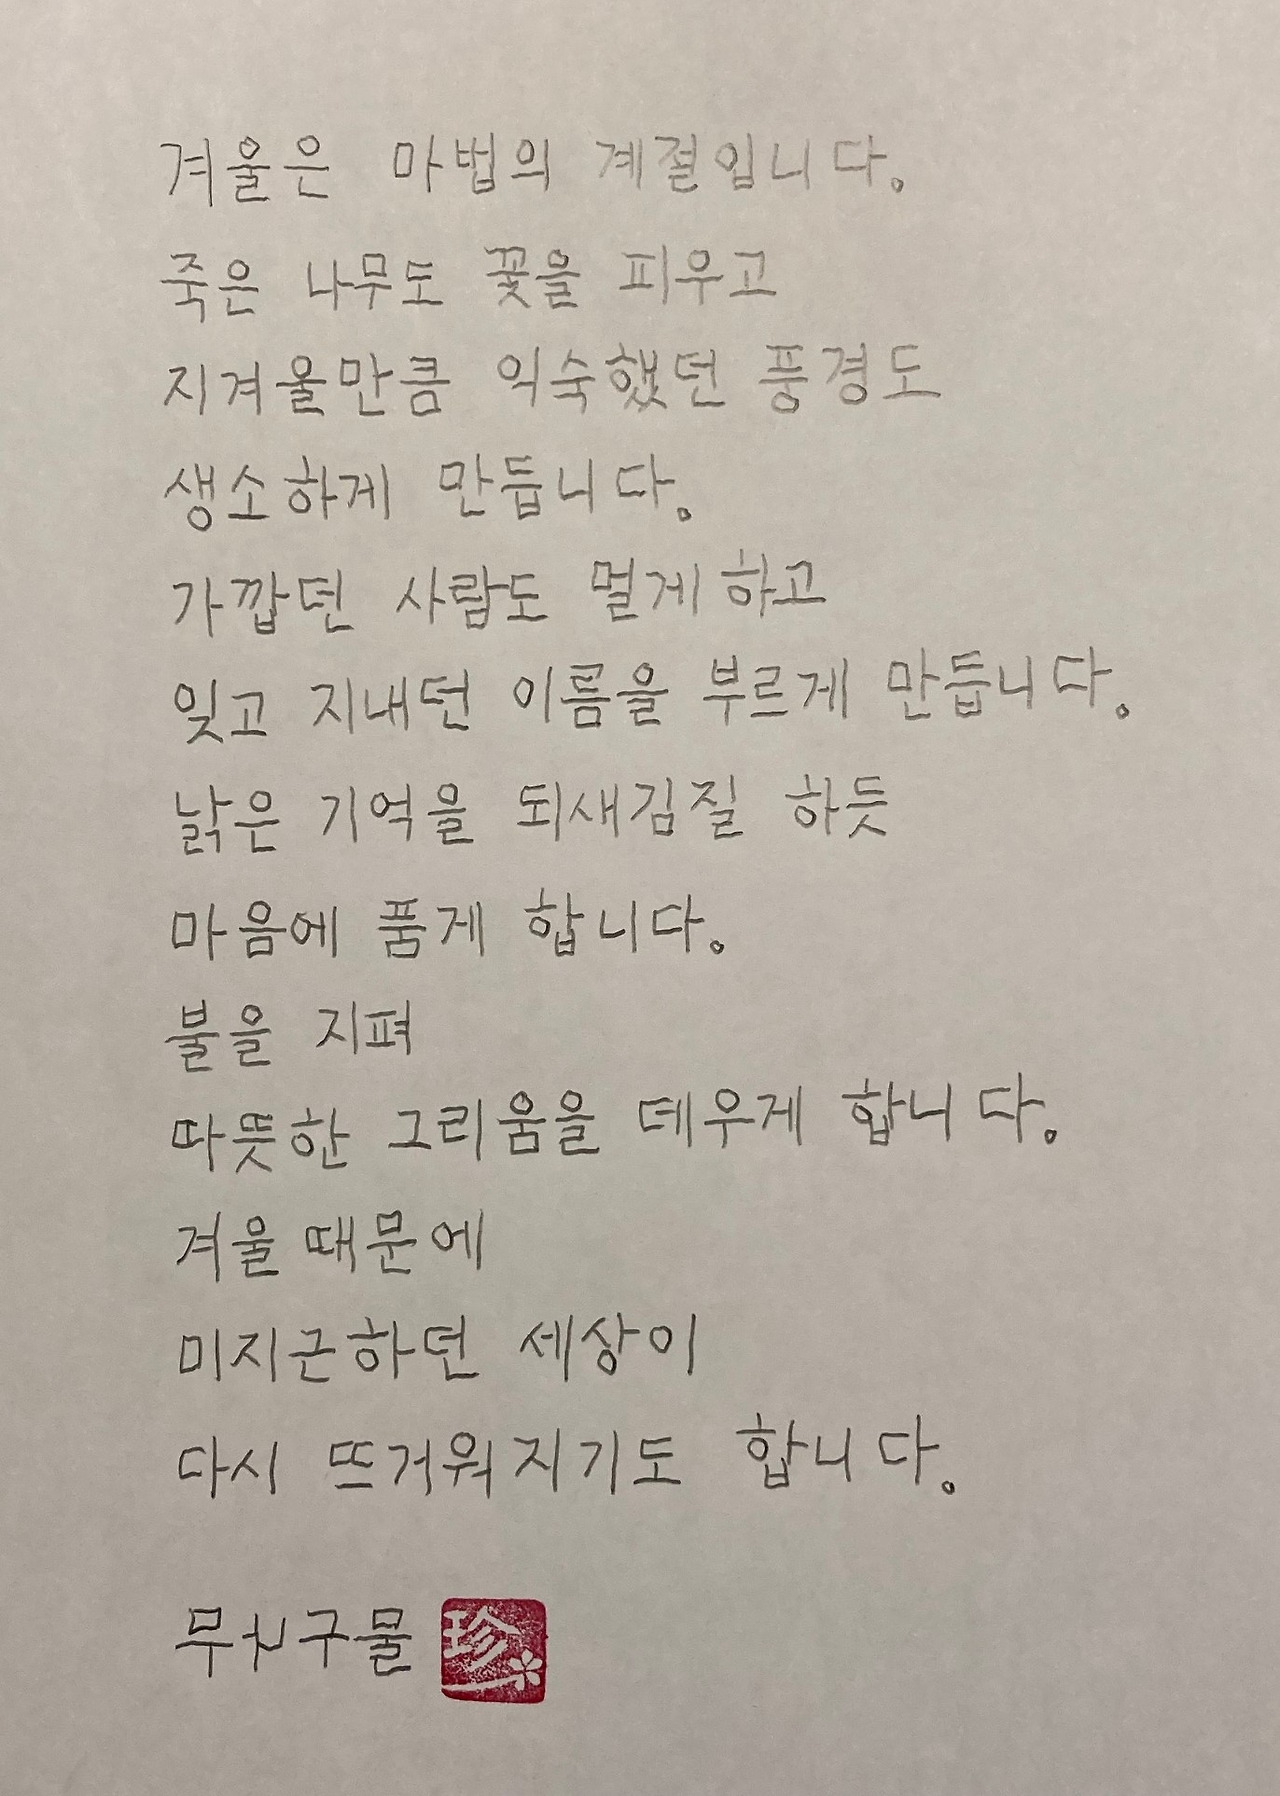 겨울은 마법의 계절입니다.
죽은 나무도 꽃을 피우고
지겨울만큼 익숙했던 풍경도
생소하게 만듭니다.
가깝던 사람도 멀게 하고
잊고 지내던 이름을 부르게 만듭니다.
낡은 기억을 되새김질 하듯
마음에 품게 합니다.
불을 지펴
따뜻한 그리움을 데우게 합니다.
겨울 때문에
미지근하던 세상이
다시 뜨거워지기도 합니다.
珍